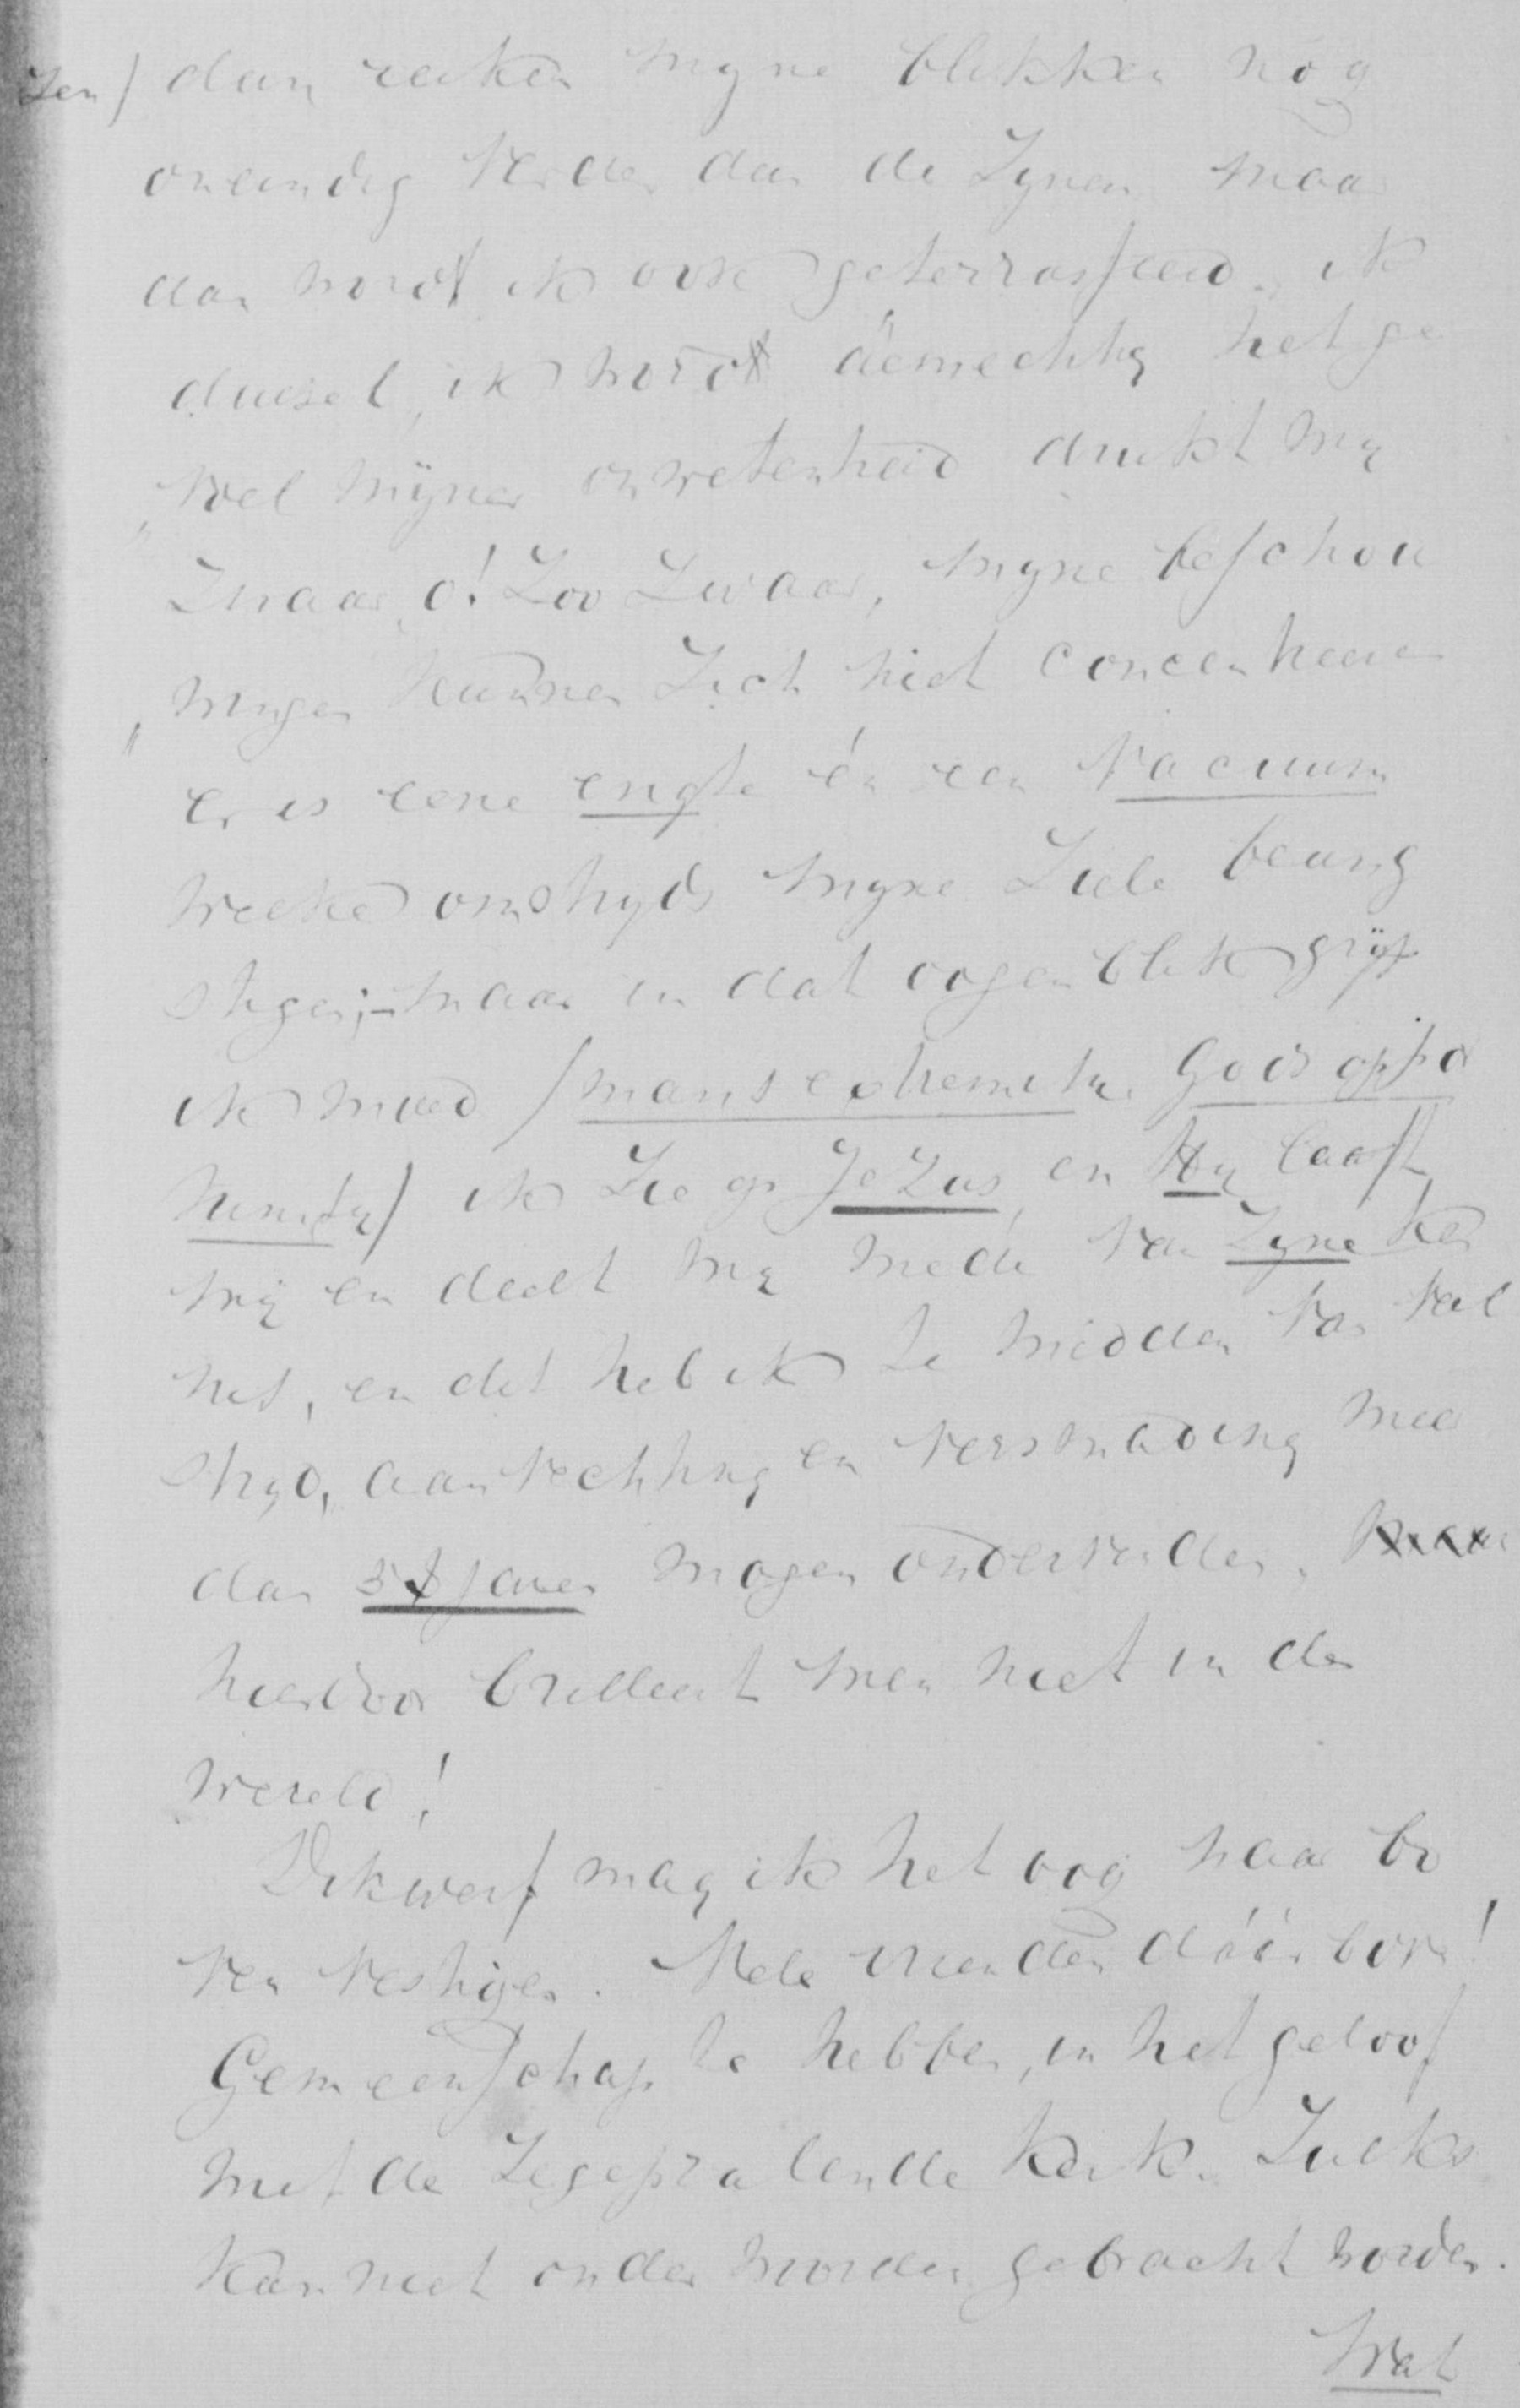 zen) dan reiken myne blikken nog
oneindig verder dan de Zynen maar
dan word ik ook geterrasseerd. ik
duizel, ik word aêmechtig het ge
„voel mijner onwetenheid drukt my
Zwaar, o! Zoo Zwaar, myne beschou
„wingen kunnen Zich niet concentreeren
er is eene engte én een vacuum
welke omstryds myne Ziele beäng
stigen;- maar in dat oogenblik grijp
ik moed /mans extremity Gods oppor
tunity/ ik Zie op JeZus, en Hy laaft
mij en deelt my mede van Zyne ken
nis, en dit heb ik te midden van veel
stryd, aanvechting en versmading meer
dan jaren mogen ondervinden. maar
hierdoor brilleert men niet in de
wereld!
Dikwerf mag ik het oog naar bo
ven vestigen. Vele vrienden dáár boven!
Gemeenschap te hebben, in het geloof
met de Zegepralende Kerk. Zulks
kan niet onder woorden gebracht worden.
Wat